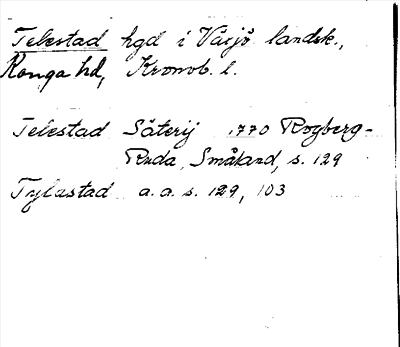 Telestad hgd i Växjö landsk.,
Konga hd, Kronob. l.
Telestad Säterij 1770 Rogberg-
Ruda, Småland, s. 129
Tylastad a. a. s. 129, 103